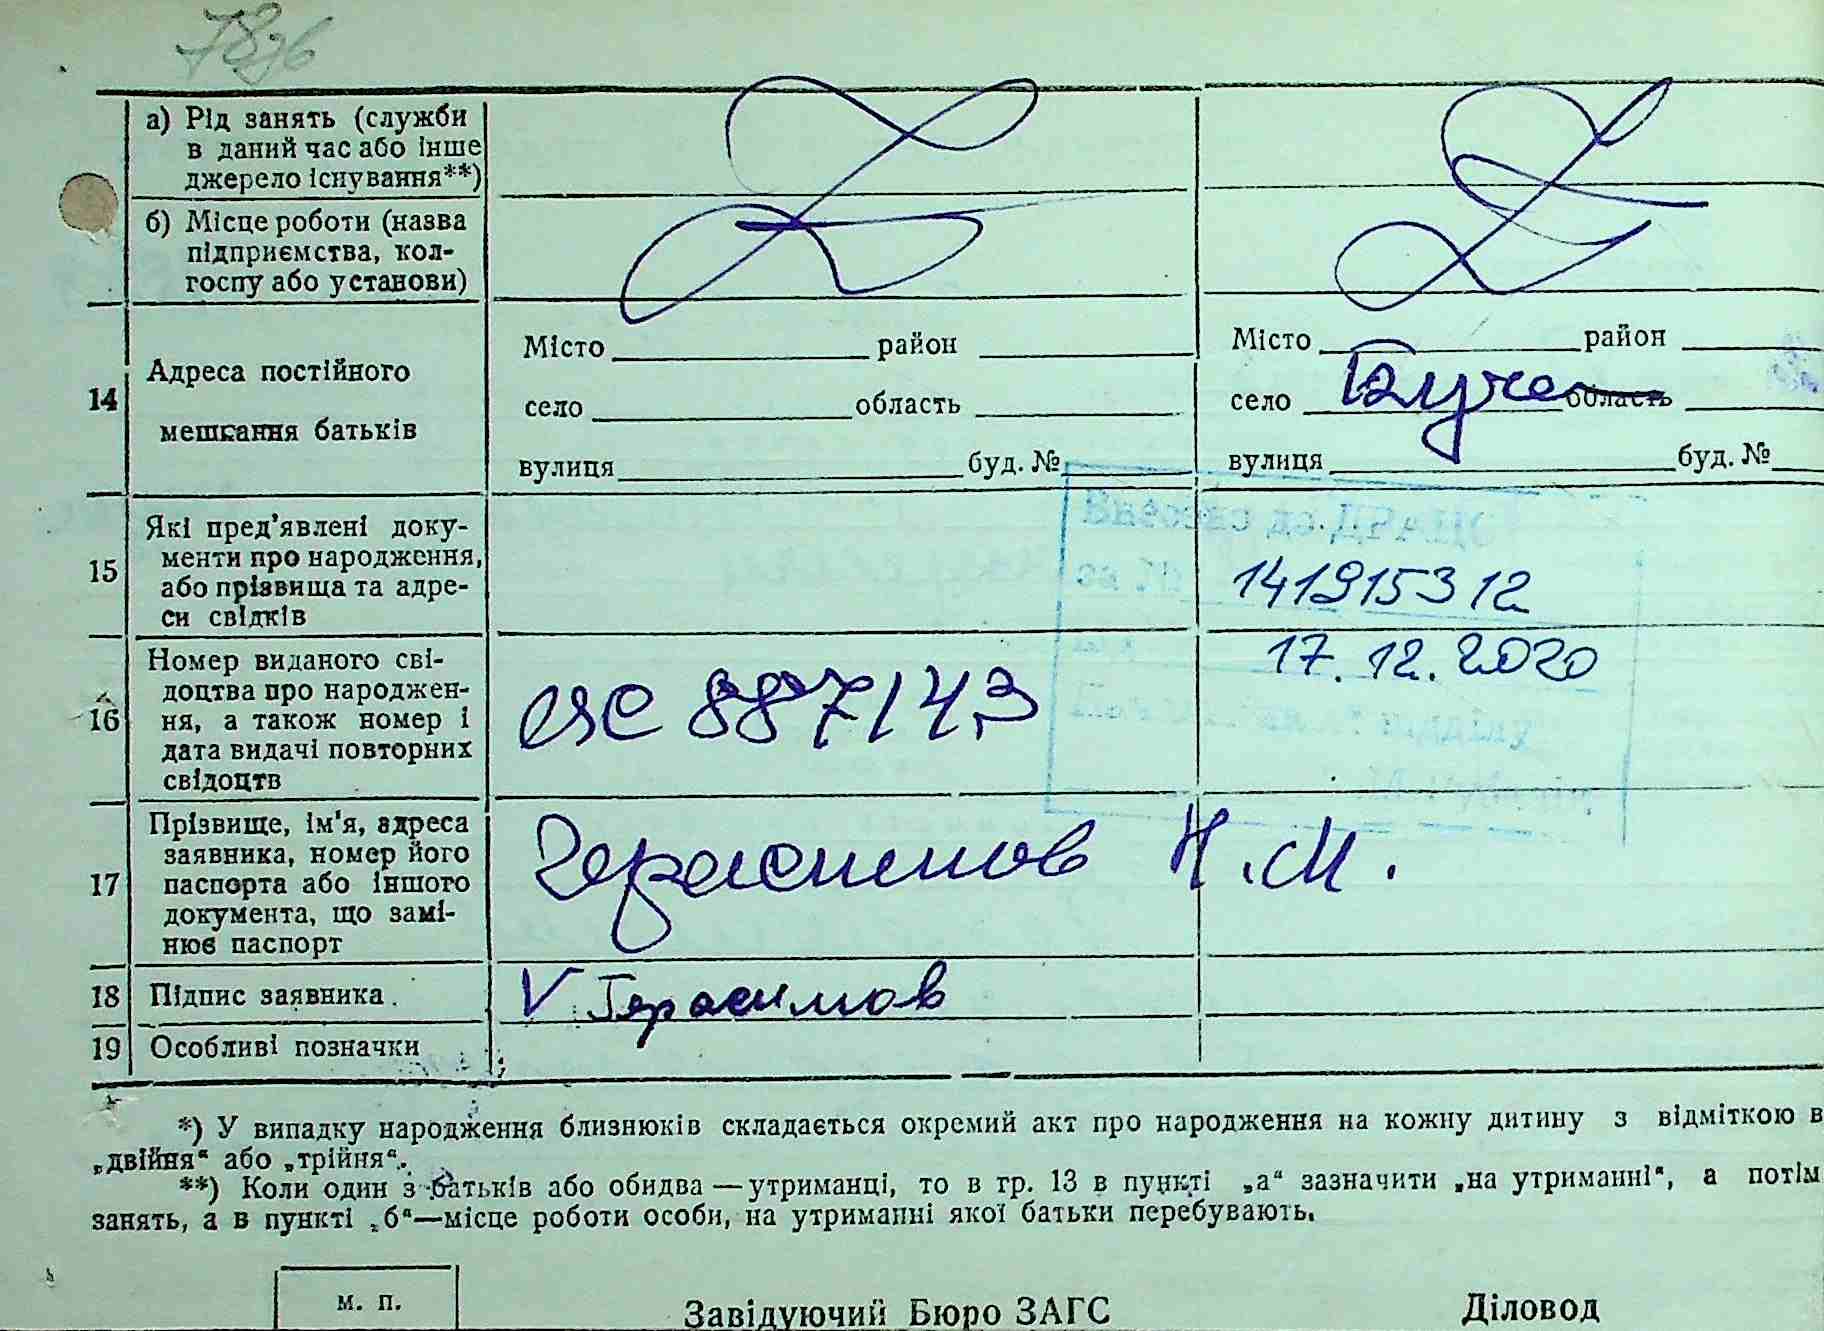 а) Рід занять (служби
в даний час або інше
джерело існування**)
б) Місце роботи (назва
підприємства, кол-
госпу або установи)
14 Адреса постійного
мешкання батьків
Місто район
село область
вулиця буд. №
Місто район
село область
вулиця буд. №
15 Які пред'явлені доку-
менти про народження,
або прізвища та адре-
си свідків
Внесено до ДРАЦС
за №
141915312
17.12.2020
відділу
16 Номер виданого сві-
доцтва про народжен-
ня, а також номер і
дата видачі повторних
свідоцтв
887143
17 Прізвище, ім'я, адреса
заявника, номер його
паспорта або іншого
документа, що замі-
нює паспорт
Герасимов Н.М.
18 Підпис заявника.
V Герасимов
19 Особливі позначки
*) У випадку народження близнюків складається окремий акт про народження на кожну дитину з відміткою в
„двійня“ або „трійня“.
**) Коли один з батьків або обидва — утриманці, то в гр. 13 в пункті „а“ зазначити „на утриманні“, а потім
занять, а в пункті „б“—місце роботи особи, на утриманні якої батьки перебувають.
м. п.
Завідуючий Бюро ЗАГС
Діловод